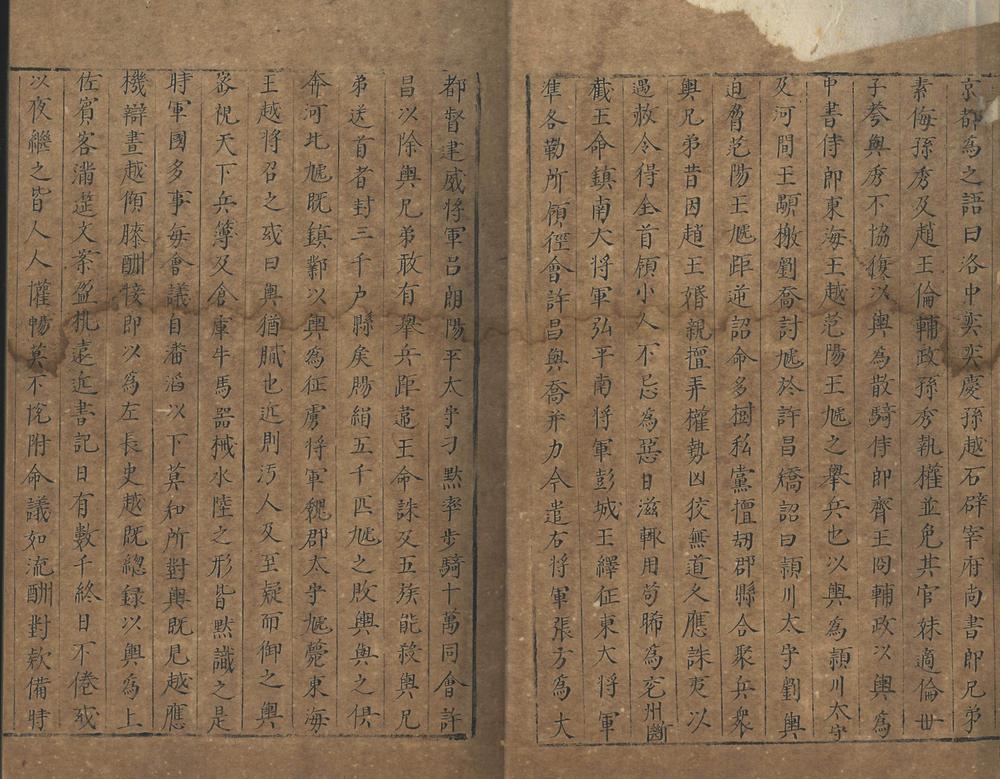 京都為之語曰洛中奕奕慶孫越石辟宰府尚書郎兄弟
素侮孫秀及趙王倫輔政孫秀執權並免其官妹適倫世
子荂輿秀不協復以輿為散騎侍郎齊王冏輔政以輿為
中書侍郎東海王越范陽王虓之舉兵也以輿為潁川太守
及河間王顒檄劉喬討虓於許昌矯詔曰潁川太守劉輿
迫脅范陽王虓距逆詔命多樹私黨擅劫郡縣合聚兵衆
輿兄弟昔因趙王婚親擅弄權勢凶狡無道久應誅夷以
遇赦令得全首領小人不忌為惡日滋輙用苟晞為兖州斷
截王命鎮南大將軍弘平南將軍彭城王繹征東大將軍
準各勒所領徑會許昌與喬并力今遣右將軍張方為大
都督建威將軍吕朗陽平太守刁黙率步騎十萬同會許
昌以除輿兄弟敢有舉兵距違王命誅及五族能殺輿兄
弟送首者封三千户縣矦賜絹五千匹虓之敗輿與之俱
奔河北虓既鎮鄴以輿為征虜將軍魏郡太守虓薨東海
王越將召之或曰輿猶膩也近則汚人及至疑而御之輿
密視天下兵簿及倉庫牛馬器械水陸之形皆黙識之是
時軍國多事每會議自潘滔以下莫知所對輿既見越應
機辯晝越傾膝酬接即以為左長史越既總録以輿為上
佐賓客滿筵文案盈机遠近書記日有數千終日不倦或
以夜繼之皆人人懽暢莫不悅附命議如流酬對欵備時